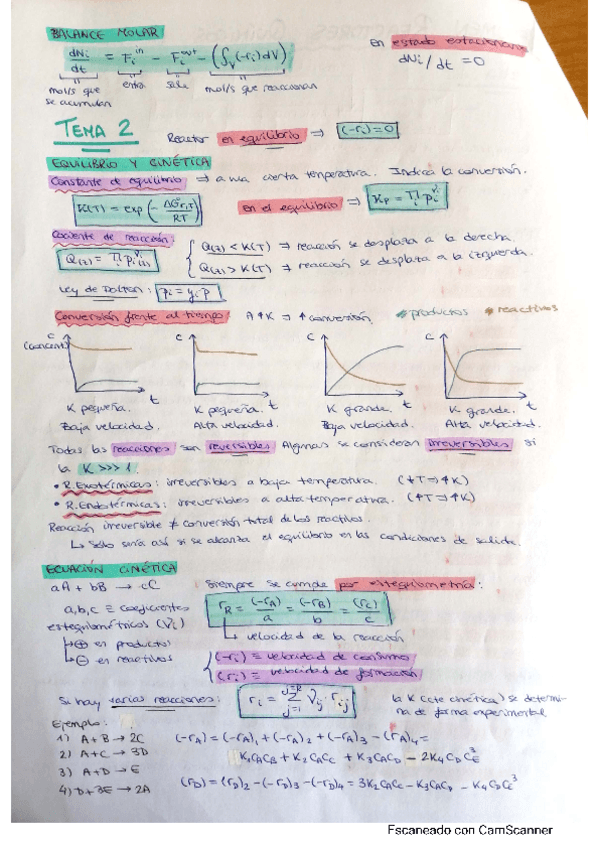 BALANCE MOLAR
dNi/dt = Fi^in − Fi^out − (∫v (−ri) dV)
en estado estacionario
dNi/dt = 0
mol/s que se acumulan
entra
sale
mol/s que reaccionan
TEMA 2
Reactor en equilibrio ⇒ (−ri) = 0
EQUILIBRIO Y CINÉTICA
Constante de equilibrio ⇒ a una cierta temperatura. Indica la conversión.
K(T) = exp(− ΔG°r,T / RT)
en el equilibrio ⇒ Kp = Πi pi^νi
Cociente de reacción:
Q(z) = Πi pi(z)^νi
Q(z) < K(T) ⇒ reacción se desplaza a la derecha.
Q(z) > K(T) ⇒ reacción se desplaza a la izquierda.
Ley de Dalton: pi = yi P
Conversión frente al tiempo A ↑K → ↑ conversión. productos reactivos
C (concent) t
C t
C t
C t
K pequeña. Baja velocidad.
K pequeña. Alta velocidad.
K grande. Baja velocidad.
K grande. Alta velocidad.
Todas las reacciones son reversibles. Algunas se consideran irreversibles si
la K >>> 1.
• R. Exotérmicas: irreversibles a baja temperatura. (↓T ⇒ ↑K)
• R. Endotérmicas: irreversibles a alta temperatura. (↑T ⇒ ↑K)
Reacción irreversible ≠ conversión total de los reactivos.
↳ Sólo será así si se alcanza el equilibrio en las condiciones de salida.
ECUACIÓN CINÉTICA
aA + bB → cC
Siempre se cumple por estequiometría:
a, b, c ≡ coeficientes
estequiométricos (νi)
↳ ⊕ en productos
↳ ⊖ en reactivos
rR = (−rA)/a = (−rB)/b = (rC)/c
↳ velocidad de la reacción
(−ri) ≡ velocidad de consumo
(ri) ≡ velocidad de formación
Si hay varias reacciones: ri = Σ νij · rij
la K (cte cinética) se determi-
na de forma experimental
Ejemplo:
1) A + B → 2C
2) A + C → 3D
3) A + D → E
4) D + 3E → 2A
(−rA) = (−rA)1 + (−rA)2 + (−rA)3 − (rA)4 =
K1CACB + K2CACC + K3CACD − 2K4CDCE^3
(rD) = (rD)2 − (−rD)3 − (−rD)4 = 3K2CACC − K3CACD − K4CDCE^3
Escaneado con CamScanner